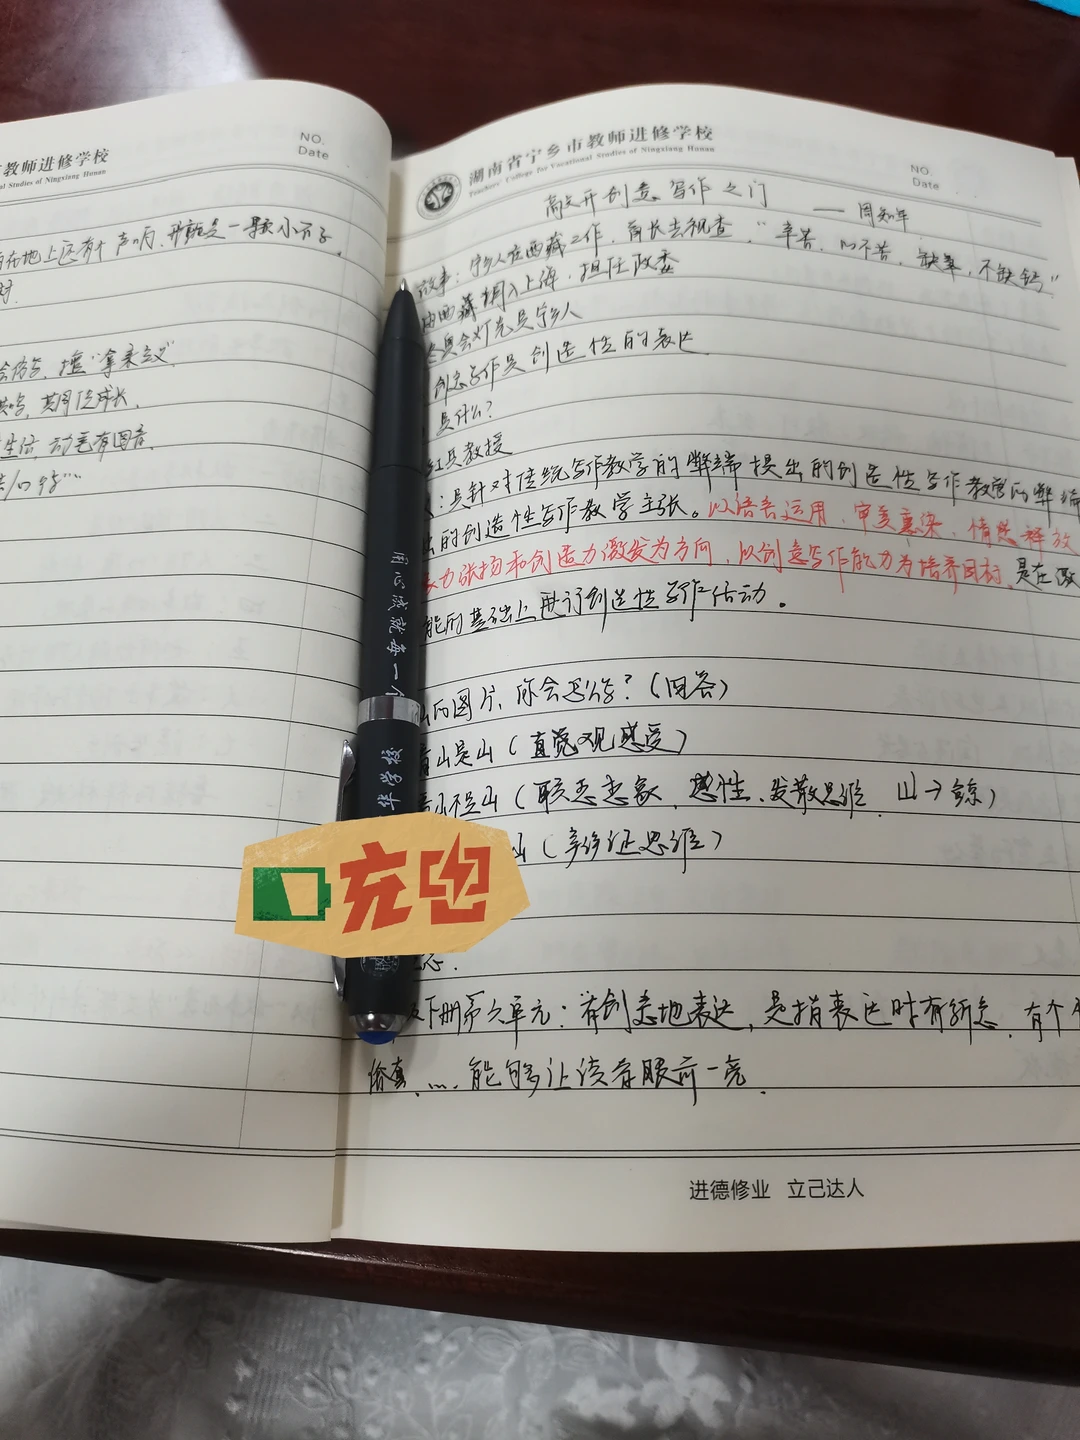 教师进修学校
NO.
Date
在地上还有个声响,那就是一颗小石子。
"拿来主义"
共同促成长。
生活,动笔有图画。
湖南省宁乡市教师进修学校
Teachers' College for Vocational Studies of Ningxiang Hunan
NO.
Date
敲开创意写作之门 ——周知年
故事:宁乡人在西藏工作,首长去视查,"辛苦,心不苦,缺氧,不缺钙"
由西藏调入上海,担任政委
奥会灯光是宁乡人
创意写作是创造性的表达
是什么?
教授
:是针对传统写作教学的弊端提出的创造性写作教学的弊端
出的创造性写作教学主张。以语言运用、审美熏染、情感释放
力张扬和创造力激发为方向,以创意写作能力为培养目标,是在激
能的基础上进行创造性写作活动。
山的图片,你会怎么写?(回答)
看山是山(直觉观感受)
不是山(联想想象、感性、发散思维 山→鲸)
山(辩证思维)
下册第六单元:有创意地表达,是指表达时有新意,有个
价真……能够让读者眼前一亮.
用心成就每一个
华学校
充电
进德修业 立己达人